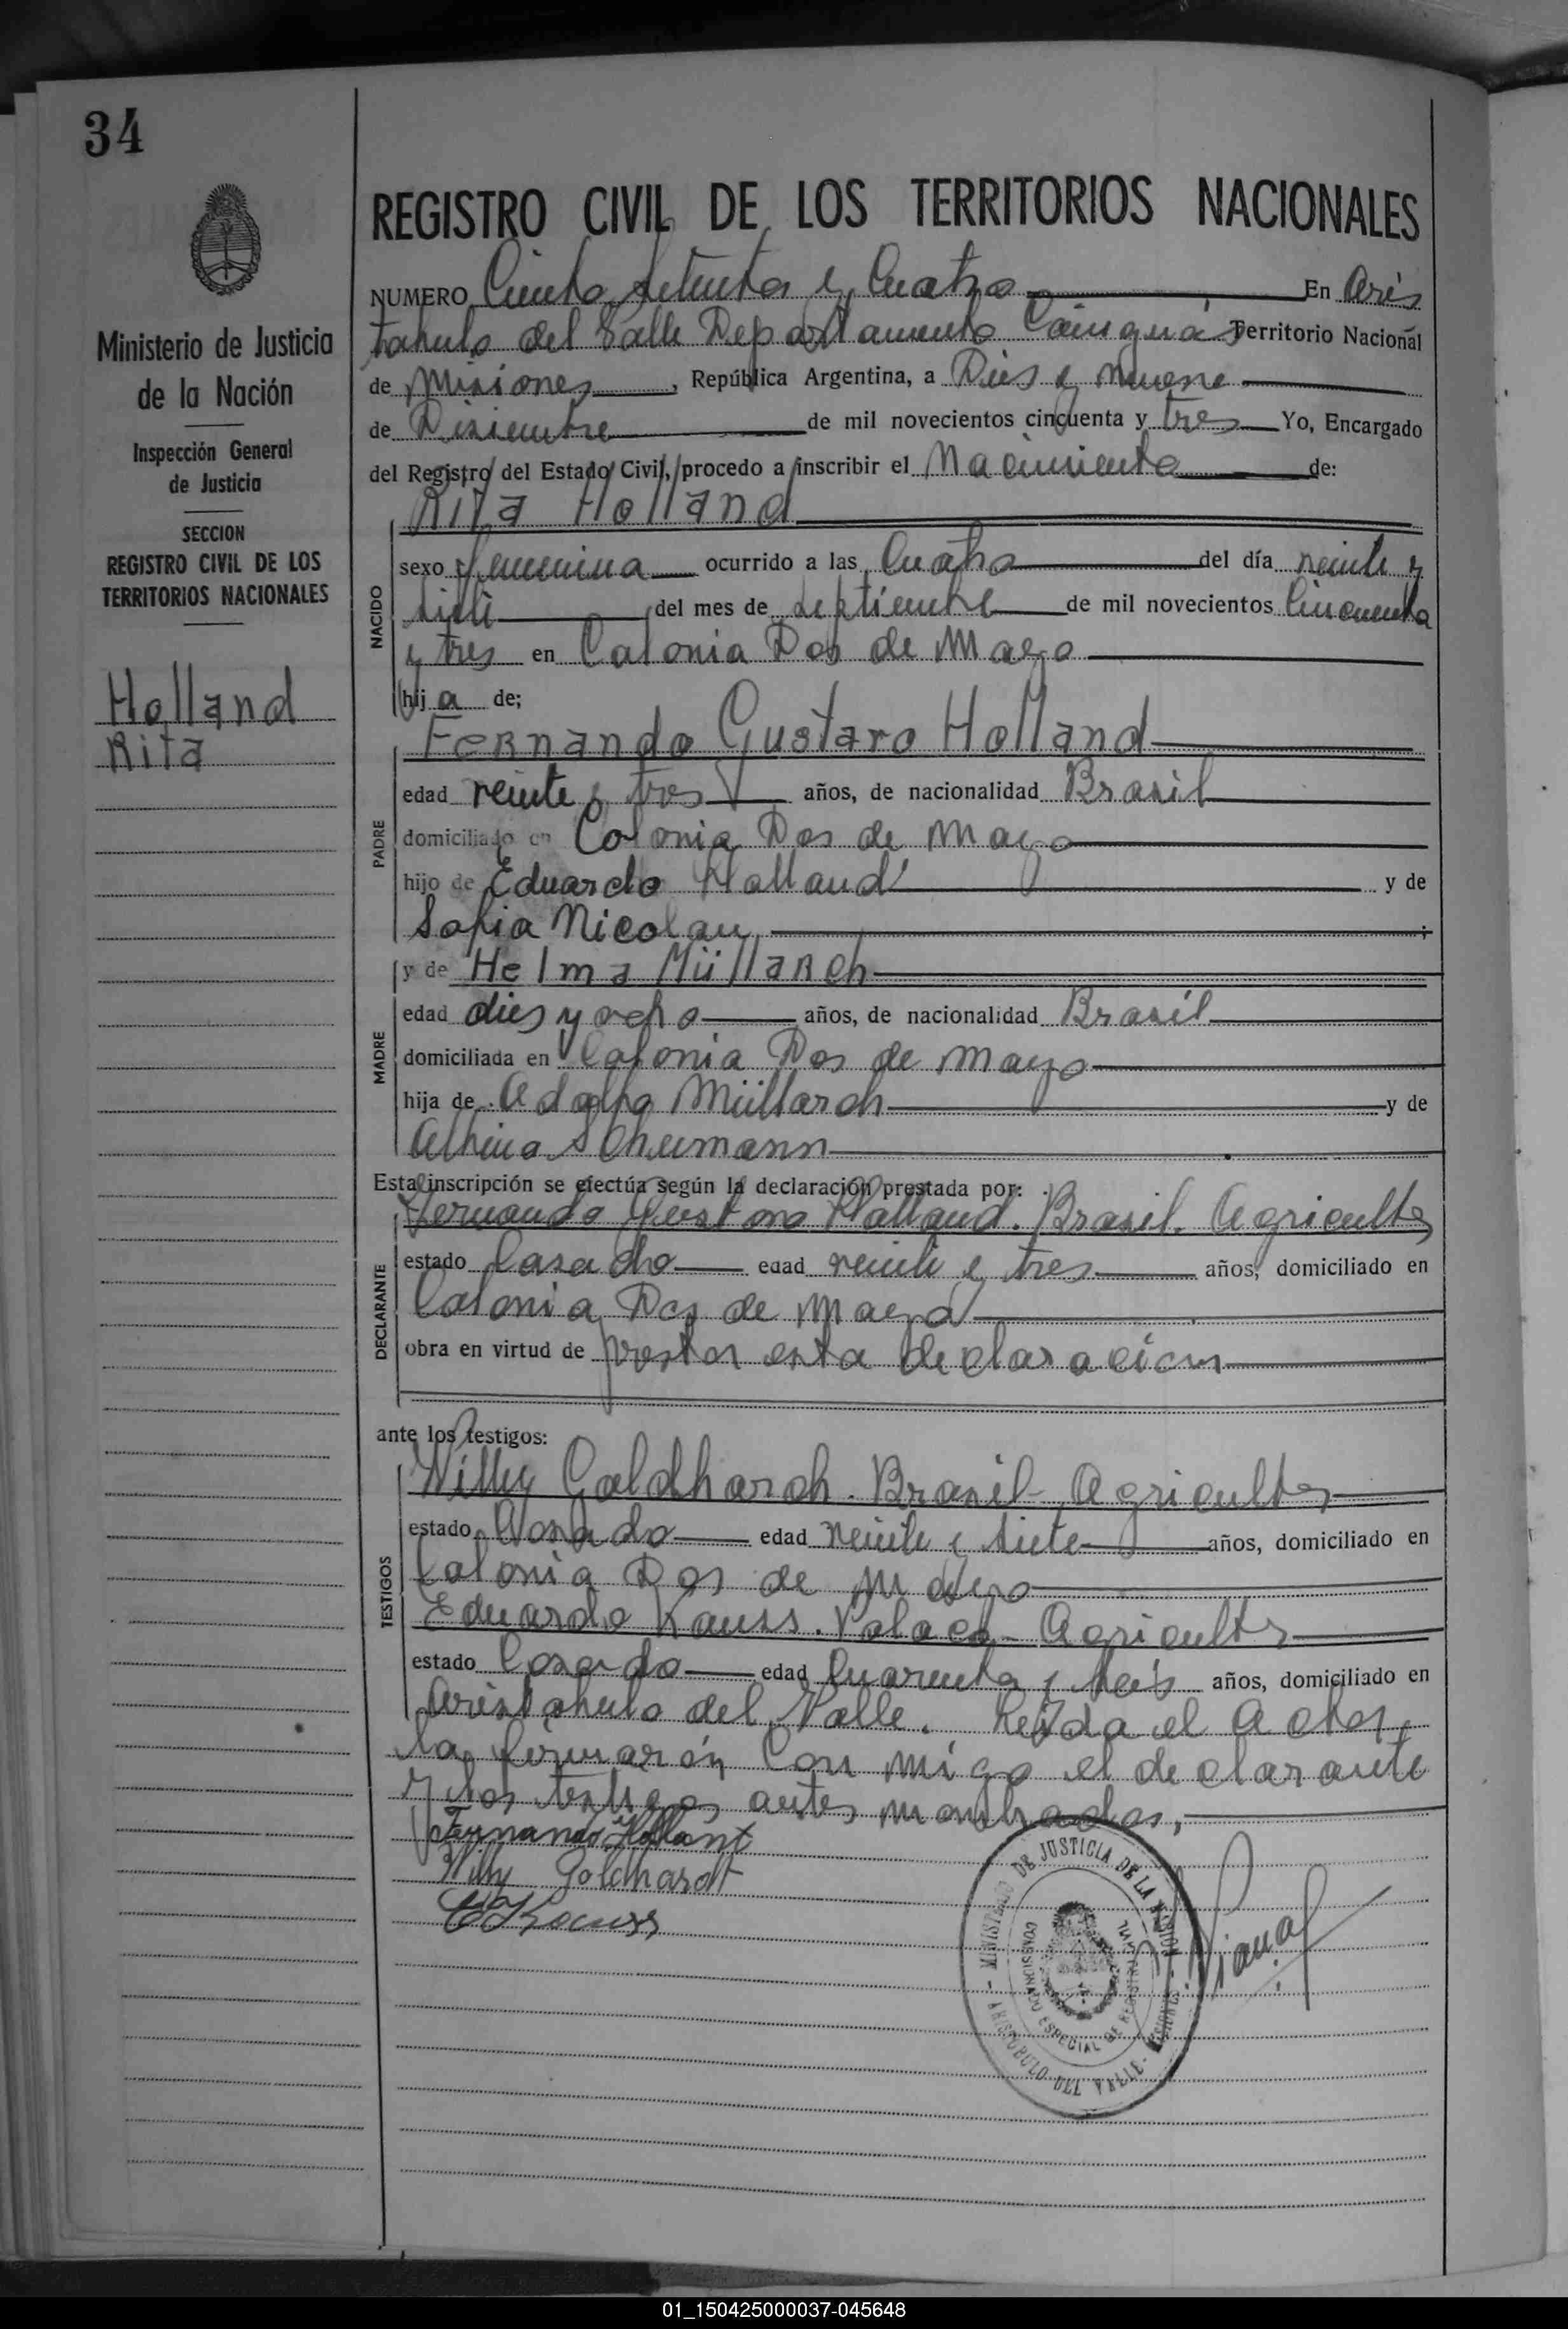 34
REGISTRO CIVIL DE LOS TERRITORIOS NACIONALES
NUMERO Ciento Setenta y Cuatro En Aris
tobulo del Valle Departamento Cainguás Territorio Nacional
de Misiones, República Argentina, a Dies y nueve
de Disiembre de mil novecientos cincuenta y tres Yo, Encargado
del Registro del Estado Civil, procedo a inscribir el Nacimiento de:
Rita Holland
Ministerio de Justicia
de la Nación
Inspección General
de Justicia
SECCION
REGISTRO CIVIL DE LOS
TERRITORIOS NACIONALES
Holland
Rita
NACIDO
sexo femenina ocurrido a las Cuatro del día veinte y
siete del mes de Septiembre de mil novecientos Cincuenta
y tres en Colonia Dos de Mayo
hij a de;
PADRE
Fernando Gustavo Holland
edad veinte y tres años, de nacionalidad Brasil
domiciliado en Colonia Dos de Mayo
hijo de Eduardo Holland y de
Sofia Nicolau ;
MADRE
y de Helma Müllarch
edad dies y ocho años, de nacionalidad Brasil
domiciliada en Colonia Dos de Mayo
hija de Adolfo Müllarch y de
Albina Schumann
Esta inscripción se efectúa según la declaración prestada por:
DECLARANTE
Fernando Gustavo Holland. Brasil. Agricultor
estado Casado edad veinte y tres años, domiciliado en
Colonia Dos de Mayo
obra en virtud de prestar esta declaracion
ante los testigos:
TESTIGOS
Willy Goldharch. Brasil- Agricultor
estado Casado edad veinte y siete años, domiciliado en
Colonia Dos de Mayo
Eduardo Kauss. Polaco- Agricultor
estado Casado edad Cuarenta y Seis años, domiciliado en
Aristobulo del Valle. Leida el Acta,
la firmarón Con migo el declarante
y los testigos antes mombrados,
Fernando Hollant
Willy Goldhardt
E Kauss
MINISTERIO DE JUSTICIA DE LA NACION
COMISIONADO ESPECIAL DE REGISTRO CIVIL
ARISTOBULO DEL VALLE - MISIONES
01_150425000037-045648